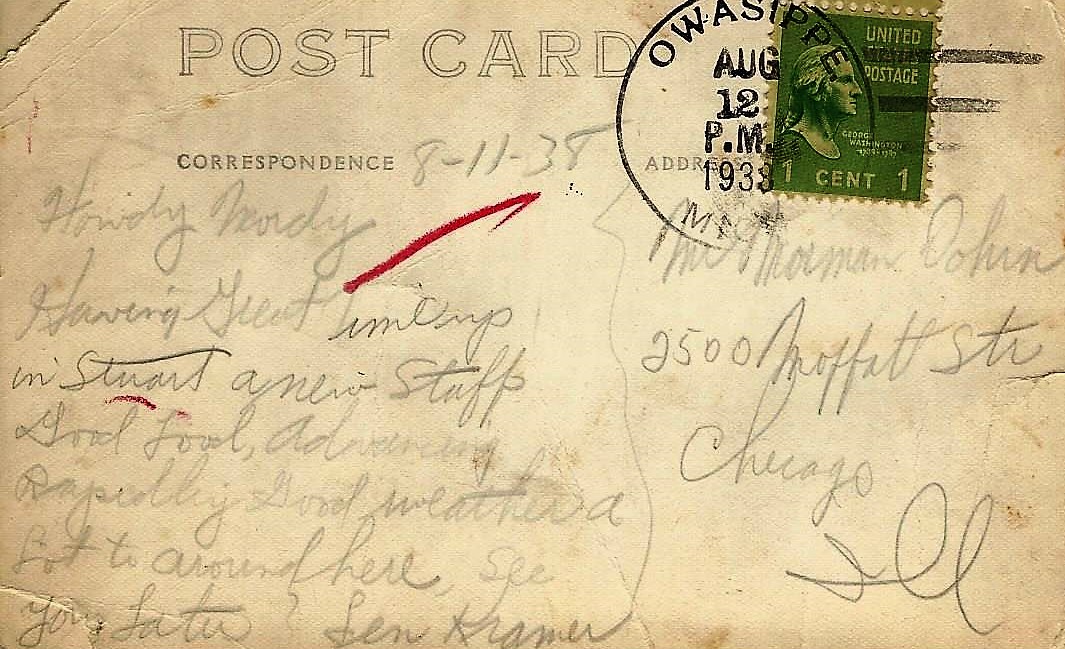 POST CARD
OWASIPPE
AUG
12
P.M.
1938
UNITED
STATES
POSTAGE
GEORGE
WASHINGTON
1 CENT 1
CORRESPONDENCE
8-11-38
ADDRESS
Howdy Mordy
Having Great time up
in Stuart a new Staff
Good Food, Advancing
Rapidly Good weather a
Lot to around here, See
You Later Len Kramer
Mr Norman
2500 Moffatt Str
Chicago
Ill